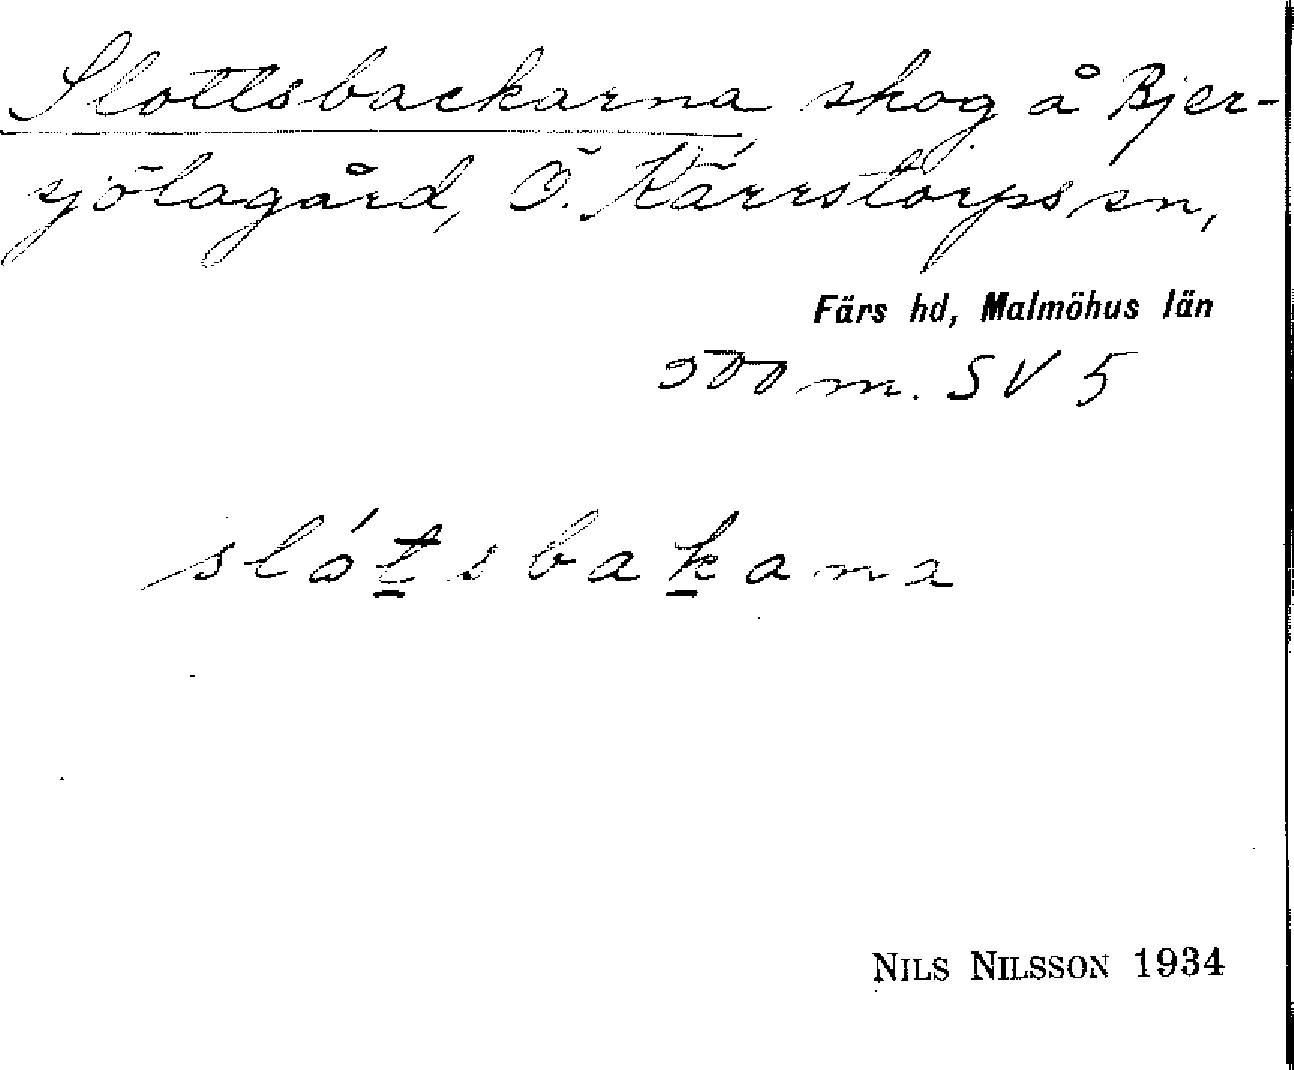 Slottsbackarna skog å Bjer-
sjölagård, Ö. Kärrstorps sn,
Färs hd, Malmöhus län
500 m. SV 5
slótsbakana
NILS NILSSON 1934